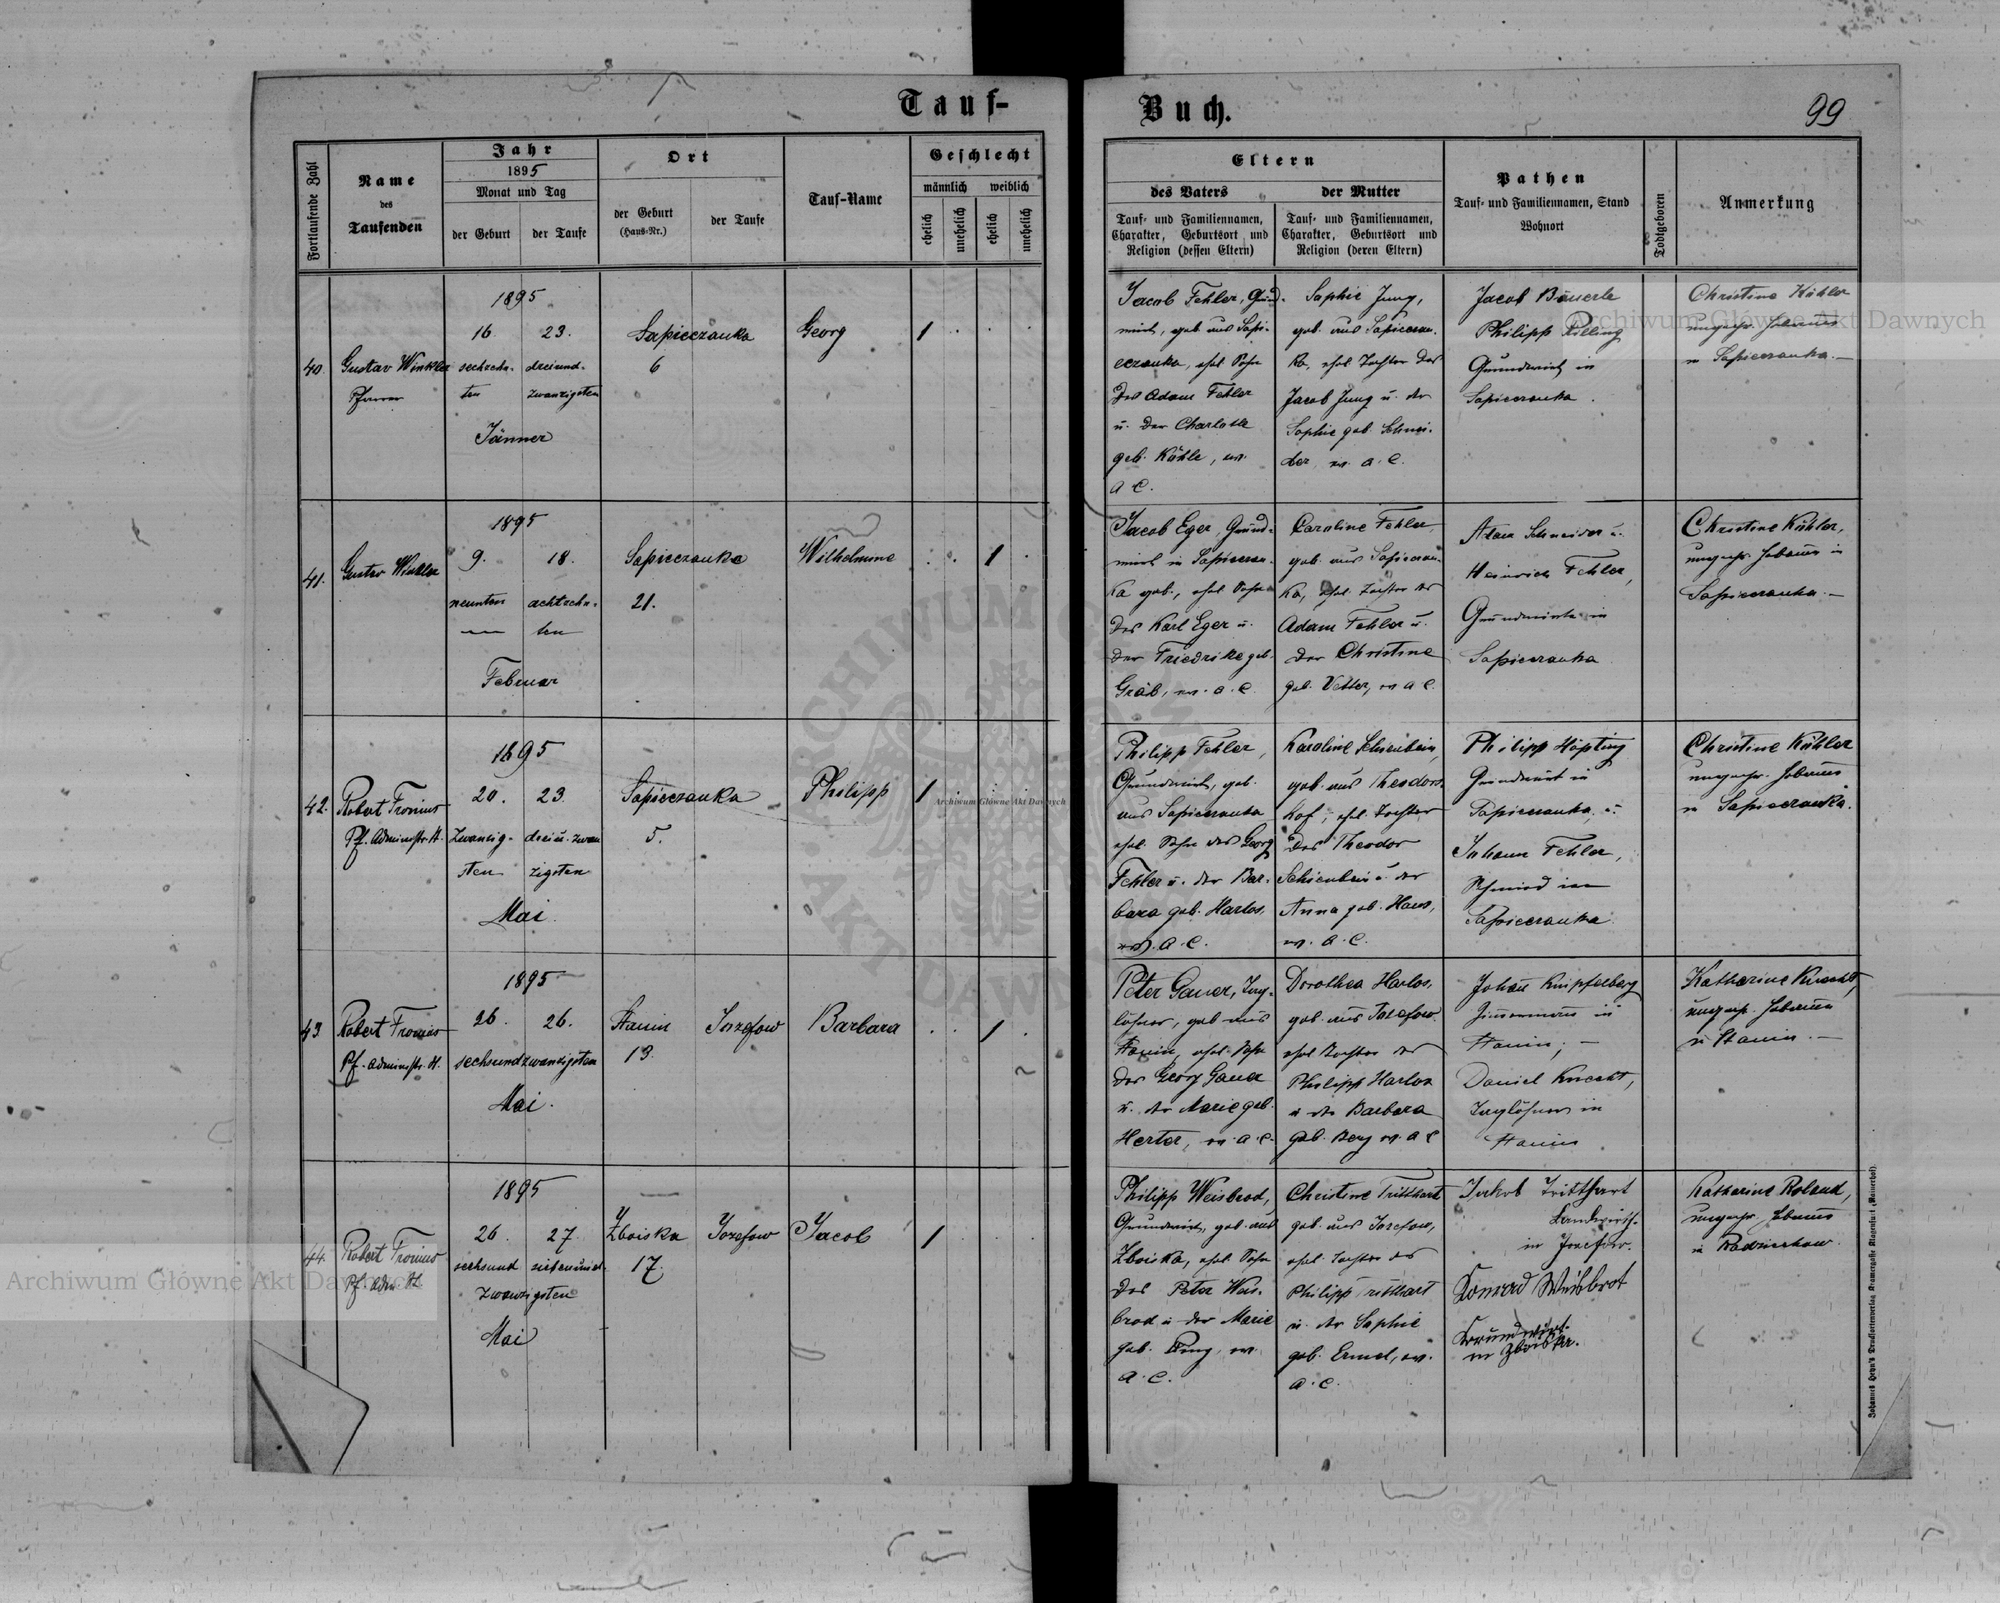 Tauf-
Buch.
99
Fortlaufende Zahl
Name
des
Taufenden
Jahr
1895
Monat und Tag
der Geburt
der Taufe
Ort
der Geburt
(Haus-Nr.)
der Taufe
Tauf-Name
Geschlecht
männlich
weiblich
ehelich
unehelich
ehelich
unehelich
Eltern
des Vaters
Tauf- und Familiennamen,
Charakter, Geburtsort und
Religion (dessen Eltern)
der Mutter
Tauf- und Familiennamen,
Charakter, Geburtsort und
Religion (deren Eltern)
Pathen
Tauf- und Familiennamen, Stand
Wohnort
Todtgeboren
Anmerkung
40.
Gustav Winkler
Pfarrer
1895
16. 23.
sechzehn- dreiund-
ten zwanzigsten
Jänner
Sapieczanka
6
Georg
1
Jacob Fehler, Grund-
wirt, geb. aus Sapi-
eczanka, ehel. Sohn
des Adam Fehler
u. der Charlotte
geb. Kühle, ev.
A. C.
Sophie Jung,
geb. aus Sapieczan-
ka, ehel. Tochter des
Jacob Jung u. der
Sophie geb. Schnei-
der, ev. A. C.
Jacob Bäuerle
Philipp Rilling
Grundwirth in
Sapieczanka.
Christine Köhler
ungepr. Hebamme
in Sapieczanka.—
41.
Gustav Winkler
1895
9. 18.
neunten achtzehn-
ten
Februar
Sapieczanka
21.
Wilhelmine
1
Jacob Eger, Grund-
wirt in Sapieczan-
ka geb., ehel. Sohn
des Karl Eger u.
der Friedrike geb.
Gräb, ev. A. C.
Caroline Fehler
geb. aus Sapieczan-
ka, ehel. Tochter des
Adam Fehler u.
der Christine
geb. Vetter, ev. A. C.
Adam Schneider u.
Heinrich Fehler,
Grundwirte in
Sapieczanka
Christine Köhler,
ungepr. Hebamme in
Sapieczanka.—
42.
Robert Fronius
Pf. Administr. H.
1895
20. 23.
zwanzig- dreiu. zwan
sten zigsten
Mai.
Sapieczanka
5.
Philipp
1
Philipp Fehler,
Grundwirt, geb.
aus Sapieczanka
ehel. Sohn des Georg
Fehler u. der Bar-
bara geb. Harlos,
ev. A. C.
Karoline Schienbein,
geb. aus Theodors-
hof, ehel. Tochter
des Theodor
Schienbein u. der
Anna geb. Haus,
ev. A. C.
Philipp Höpting
Grundwirt in
Sapieczanka, u.
Johann Fehler,
Schmied in
Sapieczanka
Christine Köhler
ungepr. Hebamme
in Sapieczanka.
43
Robert Fronius
Pf. Administr. H.
1895
26. 26.
sechsundzwanzigsten
Mai.
Stanin
13.
Jozefow
Barbara
1
Peter Gauer, Tag-
löhner, geb. aus
Stanin, ehel. Sohn
des Georg Gauer
u. der Marie geb.
Herter, ev. A. C.
Dorothea Harlos,
geb. aus Jozefow.
ehel. Tochter des
Philipp Harlos
u. der Barbara
geb. Berg ev. A. C.
Johann Knipfelberg
Zimmermann in
Stanin; —
Daniel Knecht,
Taglöhner in
Stanin
Katharine Knecht,
ungepr. Hebamme
in Stanin. —
44.
Robert Fronius
Pf. Adm. H.
1895
26. 27.
sechsund siebenund
zwanzigsten
Mai
Zboiska
17.
Jozefow
Jacob
1
Philipp Weisbrod,
Grundwirt, geb. aus
Zboiska, ehel. Sohn
des Peter Weis-
brod u. der Marie
geb. Pang, ev.
A. C.
Christine Tritthart
geb. aus Jozefow,
ehel. Tochter des
Philipp Tritthart
u. der Sophie
geb. Ermel, ev.
A. C.
Jakob Tritthart
Landwirth.
in Josefow.
Konrad Weisbrot
Grundwirt.
in Zboiska.
Katharine Roland,
ungepr. Hebamme
in Radziechow.
Johannes Heyn's Drucksortenverlag Kramergasse Klagenfurt (Kaiserhof).
Archiwum Główne Akt Dawnych
Archiwum Główne Akt Dawnych
Archiwum Główne Akt Dawnych
ARCHIWUM
AKT DAWNYCH